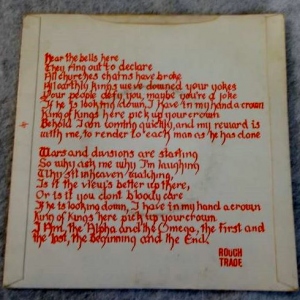 Hear the bells here
They ring out to declare
All churches chains have broke
All earthly kings we've downed your yokes
Your people defy you, maybe you're a joke
If he is looking down, I have in my hand a crown
King of Kings here pick up your crown
Behold I am coming quickly, and my reward is
with me, to render to each man as he has done
Wars and divisions are starting
So why ask me why I'm laughing
Why sit in heaven watching,
Is it the view's better up there,
Or is it you dont bloody care
If he is looking down, I have in my hand a crown
King of Kings here pick up your crown.
I Am, the Alpha and the Omega, the first and
the last, the beginning and the End.
ROUGH
TRADE